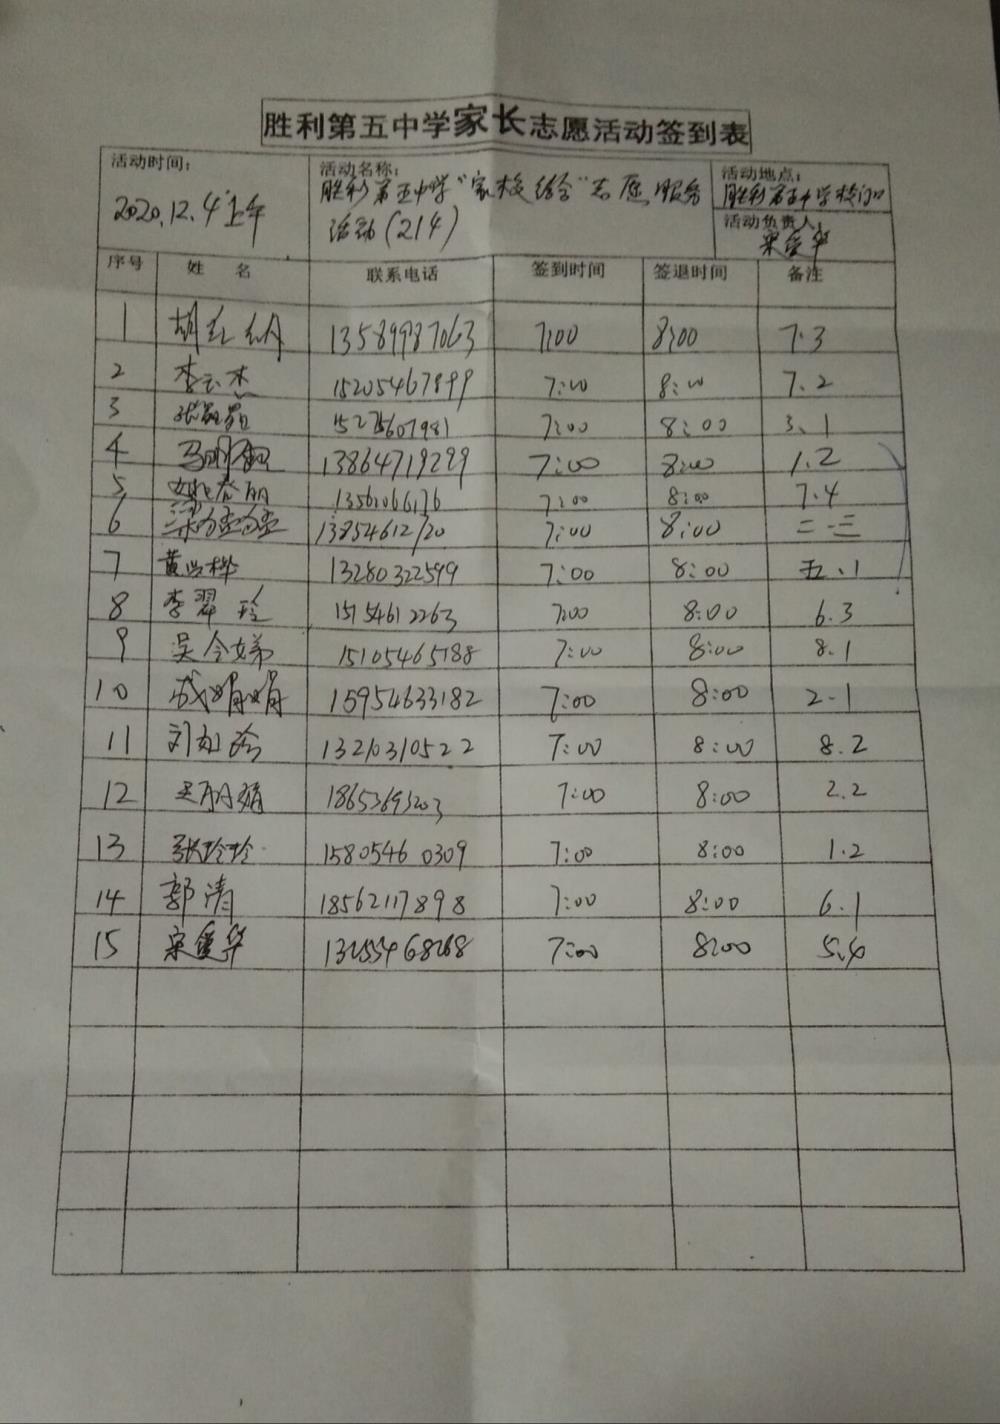 胜利第五中学家长志愿活动签到表
活动时间： 2020.12.4上午
活动名称： 胜利第五中学“家校结合”志愿服务
活动(214)
活动地点： 胜利第五中学校门口
活动负责人： 宋爱华
序号 姓 名 联系电话 签到时间 签退时间 备注
1 胡红娟 13589987063 7:00 8:00 7.3
2 李云杰 15205467899 7:00 8:00 7.2
3 15275607981 7:00 8:00 3、1
4 13864719299 7:00 8:00 1.2
5 姚春丽 13561066176 7:00 8:00 7.4
6 13854612120 7:00 8:00 二·三
7 黄兴桦 13280322599 7:00 8:00 五.1
8 李翠玲 15154612263 7:00 8:00 6.3
9 吴令娣 15105465188 7:00 8:00 8.1
10 成娟娟 15954633182 7:00 8:00 2-1
11 刘红玲 13210310522 7:00 8:00 8.2
12 18653693203 7:00 8:00 2.2
13 张玲玲 15805460309 7:00 8:00 1.2
14 郭清 18562117898 7:00 8:00 6.1
15 宋爱华 13255468268 7:00 8:00 5.4